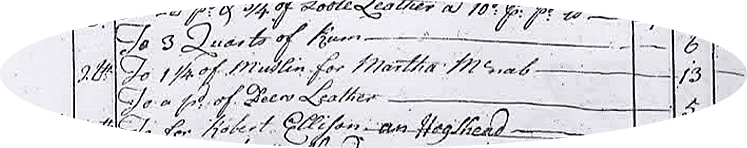 pr. & 3/4 of Soole Leather a 10d. pr. pr.
To 3 Quarts of Rum 6
2.th To 1 1/4 of Muslin for Martha Mcnab 13
To a pr. of Deers Leather 5
To for Robert Ellison an Hogshead